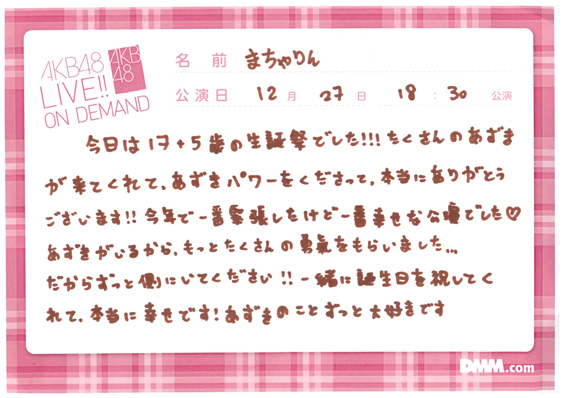 AKB48
LIVE!!
ON DEMAND
AKB
48
名 前 まちゃりん
公演日 12 月 27 日 18 : 30 公演
今日は17+5歳の生誕祭でした!!!たくさんのあずま
が来てくれて、あずきパワーをくださって、本当にありがとう
ございます!!今年で一番緊張したけど一番幸せな公演でした♡
あずきがいるから、もっとたくさんの勇気をもらいました...
だからずっと側にいてください!!一緒に誕生日を祝してく
れて、本当に幸せです!あずきのことずっと大好きです
DMM.com